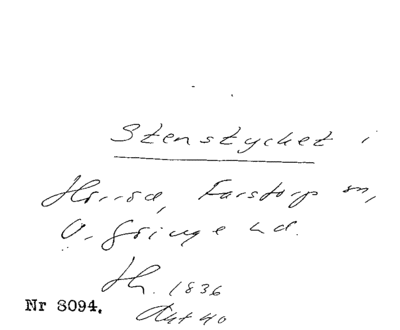 Stenstycket i
Hörröd, Farstorp sn,
V. Göinge hd.
1836
Akt 40
Nr 8094.